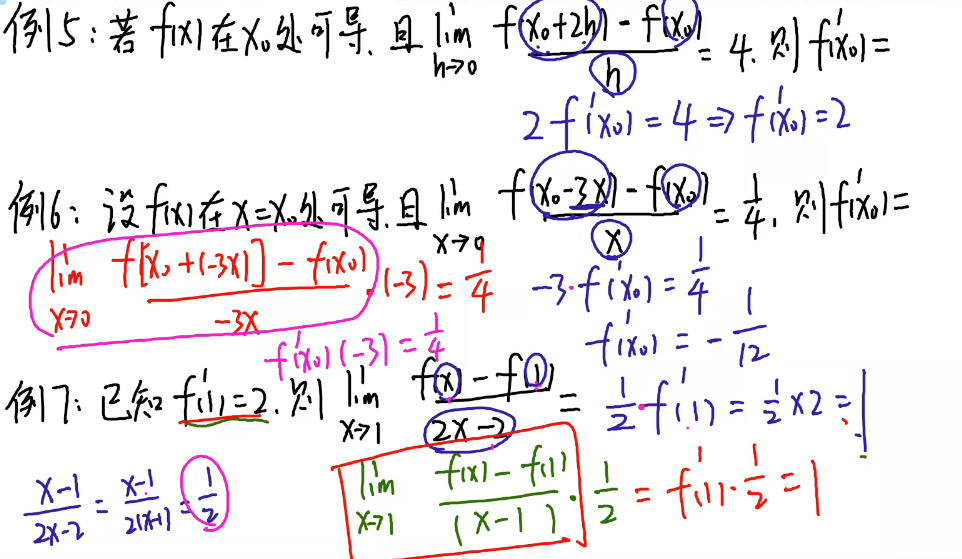 例5：若f(x)在x₀处可导,且lim h→0 f(x₀+2h)-f(x₀)/h = 4.则f'(x₀)=
2f'(x₀)=4⇒f'(x₀)=2
例6：设f(x)在x=x₀处可导,且lim x→0 f(x₀-3x)-f(x₀)/x = 1/4.则f'(x₀)=
lim x→0 f[x₀+(-3x)]-f(x₀)/-3x ·(-3)=1/4
-3·f'(x₀)=1/4
f'(x₀)(-3)=1/4
f'(x₀)=-1/12
例7：已知f'(1)=2.则lim x→1 f(x)-f(1)/2x-2 = 1/2·f'(1)=1/2×2=1
x-1/2x-2=x-1/2(x-1)=1/2
lim x→1 f(x)-f(1)/(x-1)·1/2=f'(1)·1/2=1